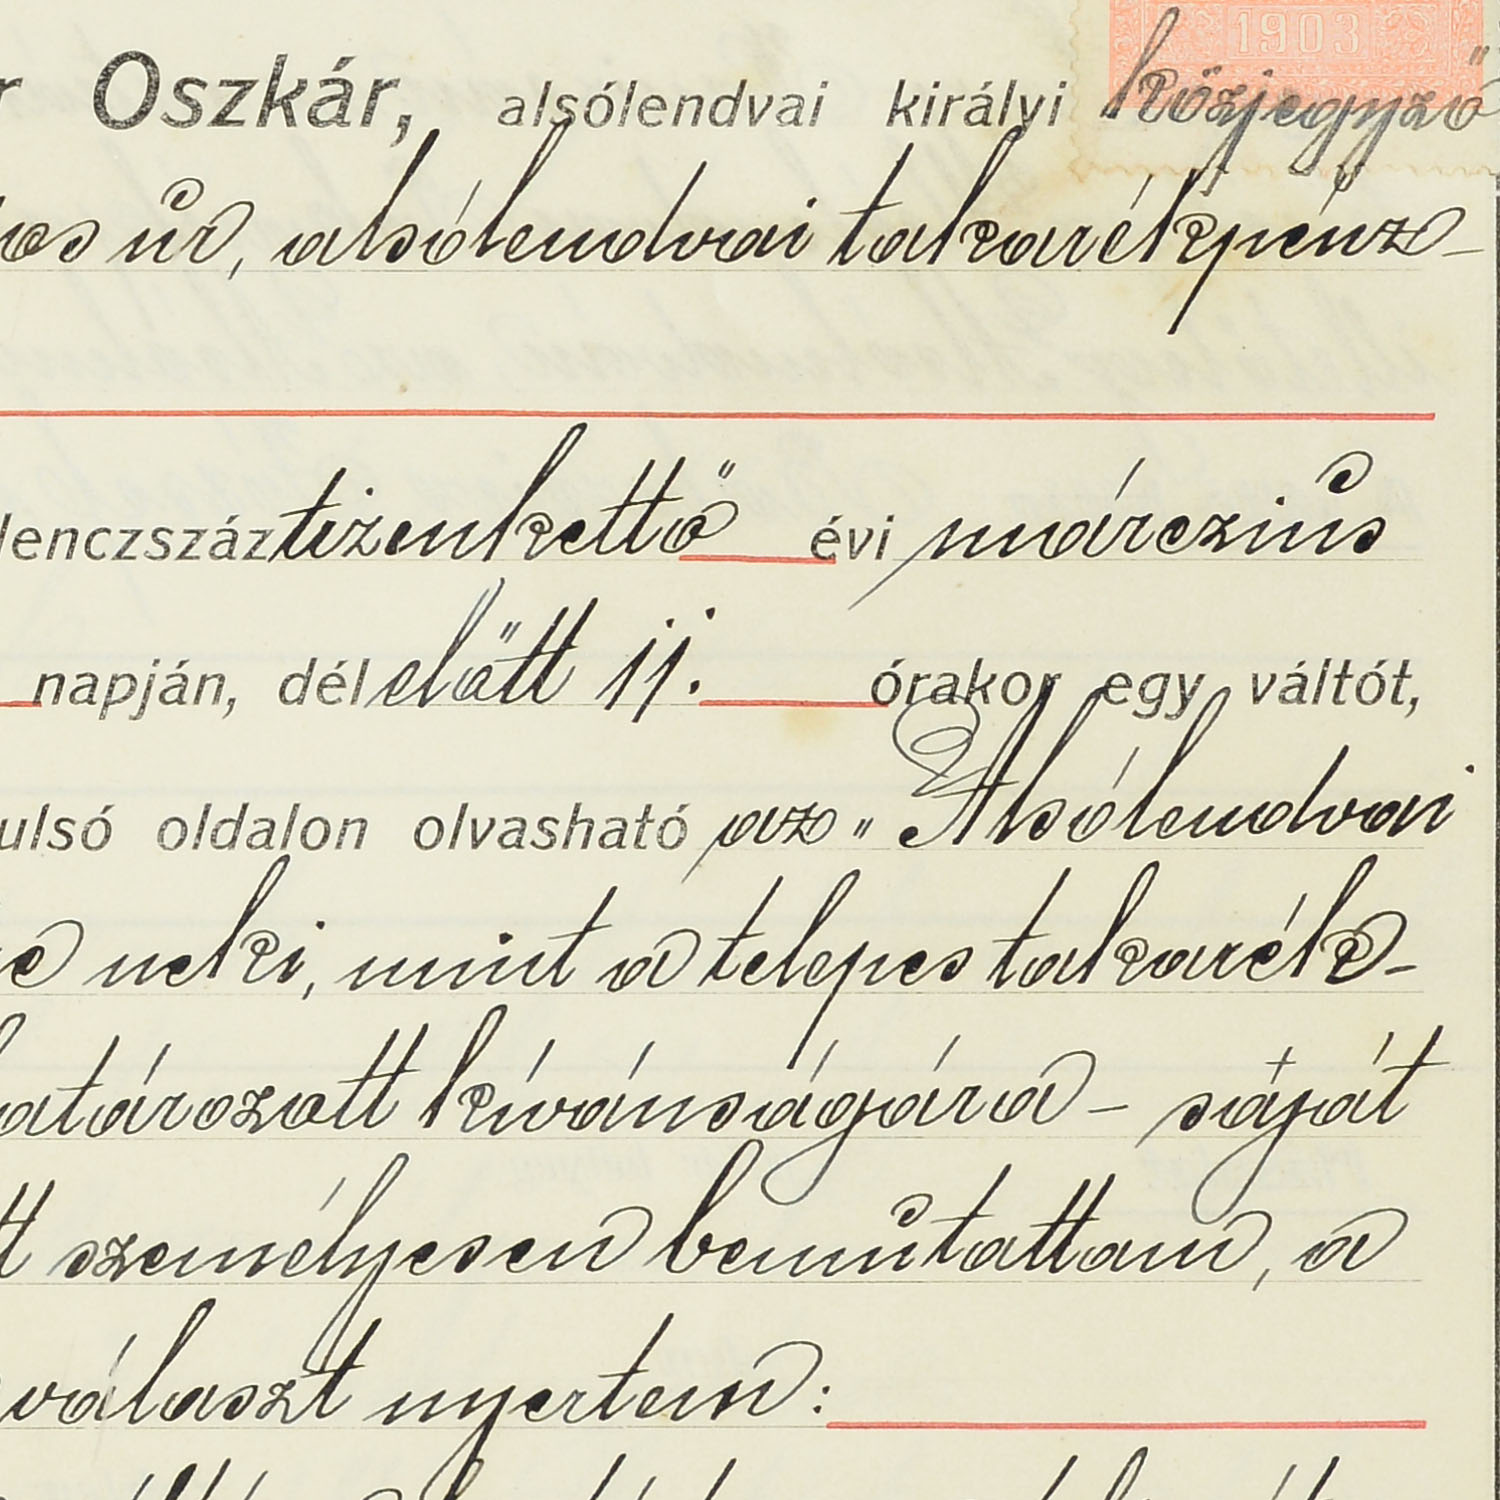 1903
r Oszkár, alsólendvai királyi közjegyző
úr, alsólendvai takarékpénz-
lenczszáztizenkettő évi márczius
napján, délelőtt 11. órakor egy váltót,
ulsó oldalon olvasható az „Alsólendvai
neki, mint a telepes takarék-
atározott kívánságára - saját
tt személyesen bemutattam, a
választ nyertem: